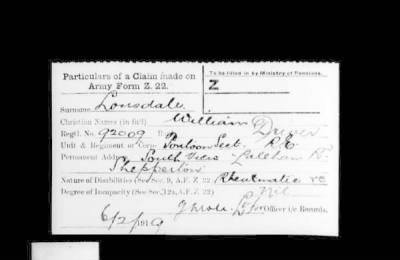 Particulars of a Claim made on
Army Form Z. 22.
To be filled in by Ministry of Pensions.
Z
Surname Lonsdale
Christian Names (in full) William
Regtl. No. 92009 Driver
Unit & Regiment or Corps Pontoon Sect. R.E.
Permanent Address South View
Shepperton
Nature of Disabilities (See Sec. 9, A.F. Z. 22) Rheumatic
Degree of Incapacity (See Sec. 12a, A.F. Z. 22) Nil
6/2/1919 Officer i/c Records.